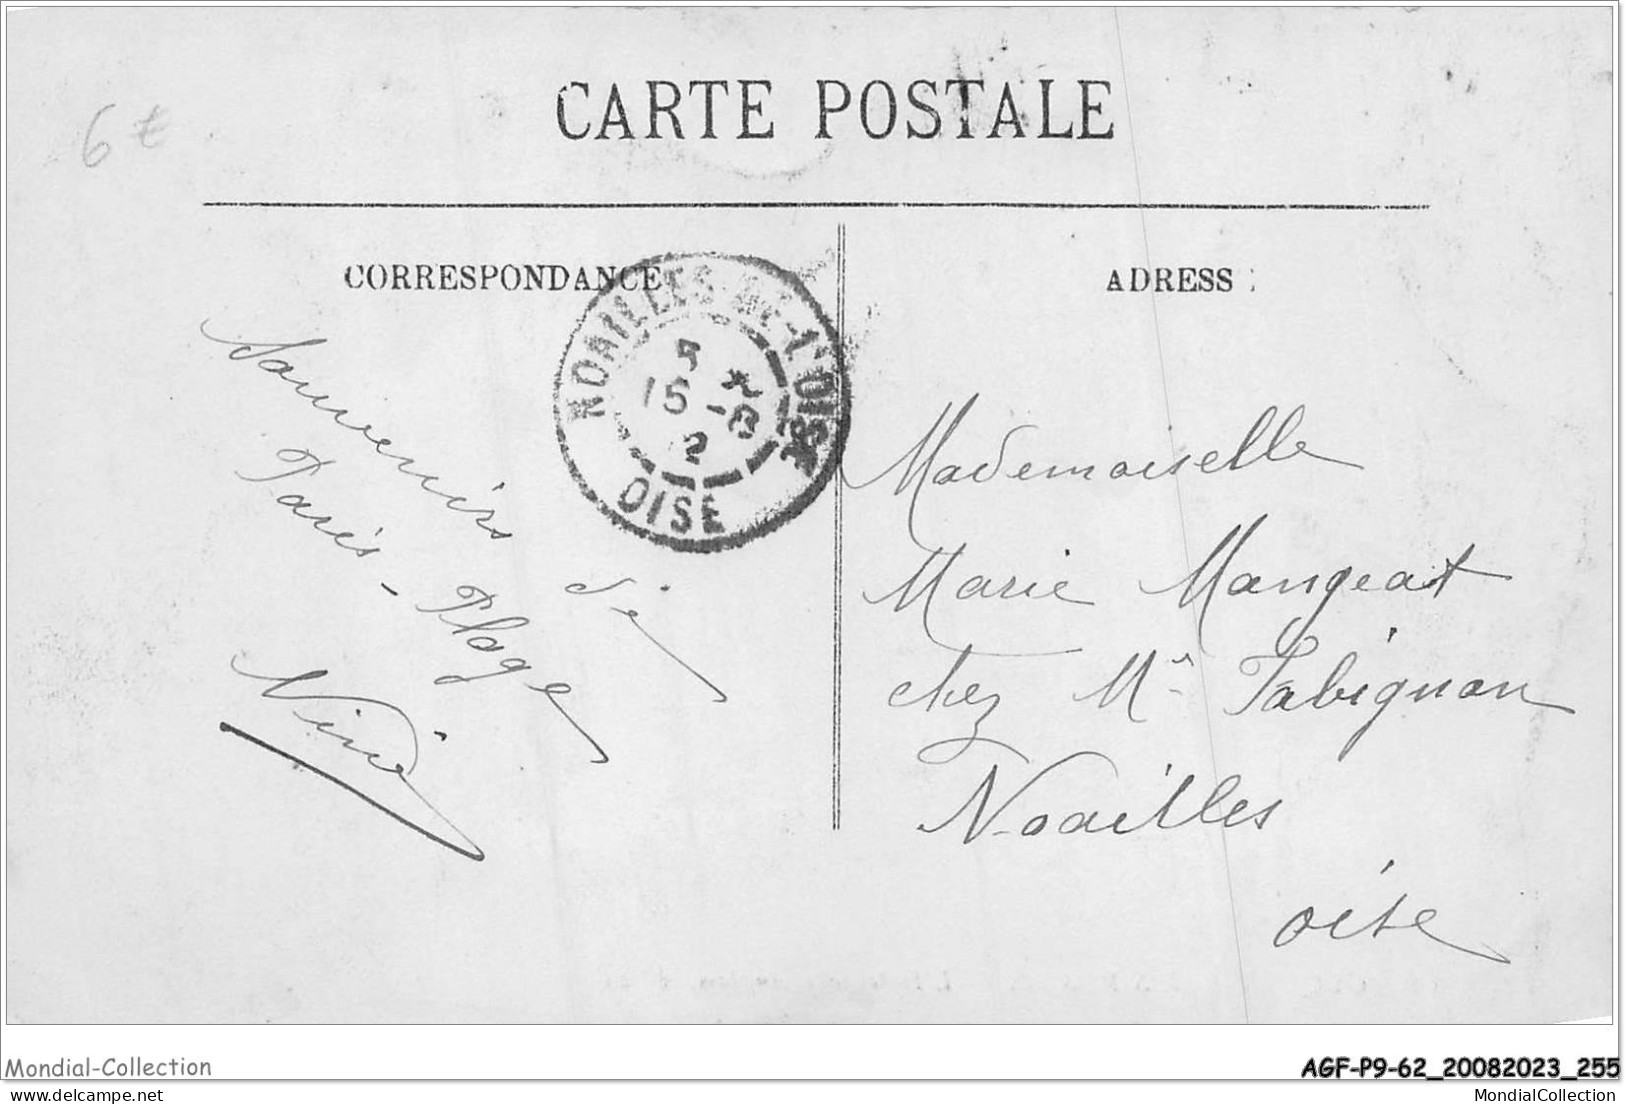 6 €
CARTE POSTALE
CORRESPONDANCE
ADRESSE
NOAILLES-DE-L'OISE
15 -8
2
OISE
Souvenirs de
Paris-Plage
Mademoiselle
Marie Mangeat
chez Mr Fabignon
Noailles
oise
Mondial-Collection
AGF-P9-62_20082023_255
Delcampe.net
MondialCollection